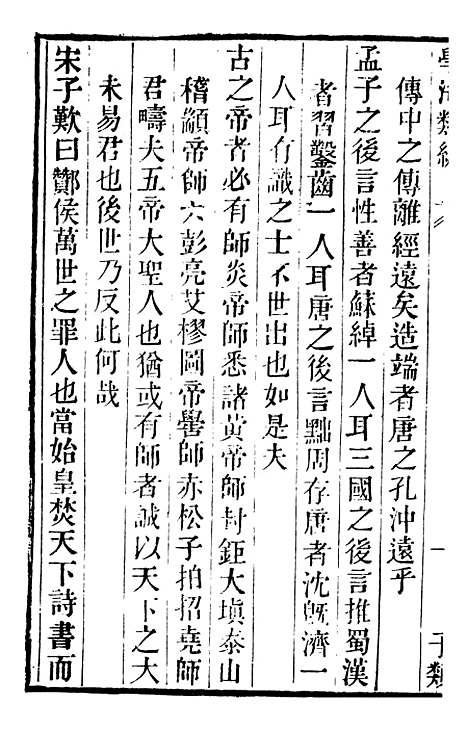 傳中之傳離經遠矣造端者唐之孔沖遠乎
孟子之後言性善者蘇綽一人耳三國之後言推蜀漢
者習鑿齒一人耳唐之後言黜周存唐者沈旣濟一
人耳有識之士不世出也如是夫
古之帝者必有師炎帝師悉諸黃帝師封鉅大塡泰山
稽顓帝師六彭亮艾樛圖帝嚳師赤松子拍招堯師
君疇夫五帝大聖人也猶或有師者誠以天下之大
未易君也後世乃反此何哉
宋子歎曰酇侯萬世之罪人也當始皇焚天下詩書而